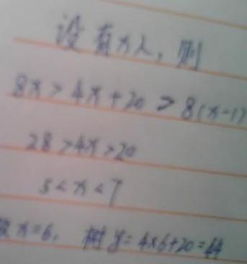 设有x人，则
8x>4x+20>8(x-1)
28>4x>20
5<x<7
取x=6, 树y=4×6+20=44